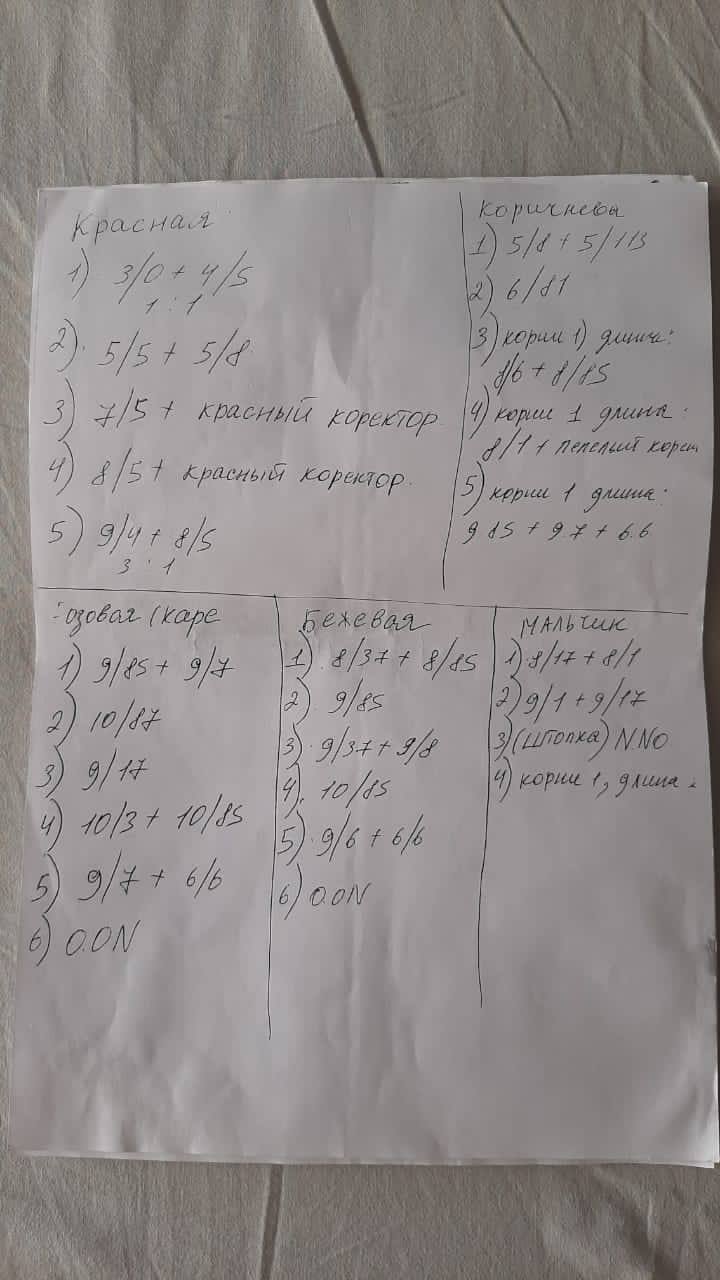 Красная
1) 3/0 + 4/5
1 : 1
2) 5/5 + 5/8
3) 7/5 + красный коректор.
4) 8/5 + красный коректор.
5) 9/4 + 8/5
3 : 1
коричнева
1) 5/8 + 5/113
2) 6/81
3) корни 1) длина:
8/6 + 8/85
4) корни 1 длина:
8/1 + пепелый корет
5) корни 1 длина:
9 85 + 9.7 + 6.6
озовая (каре
1) 9/85 + 9/7
2) 10/87
3) 9/17
4) 10/3 + 10/85
5) 9/7 + 6/6
6) 0.0N
Бежевая
1). 8/37 + 8/85
2) 9/85
3). 9/37 + 9/8
4). 10/85
5). 9/6 + 6/6
6) 0.0N
МАЛЬЧИК
1) 8/17 + 8/1
2) 9/1 + 9/17
3) (Штопка) N.NO
4) корни 1, длина